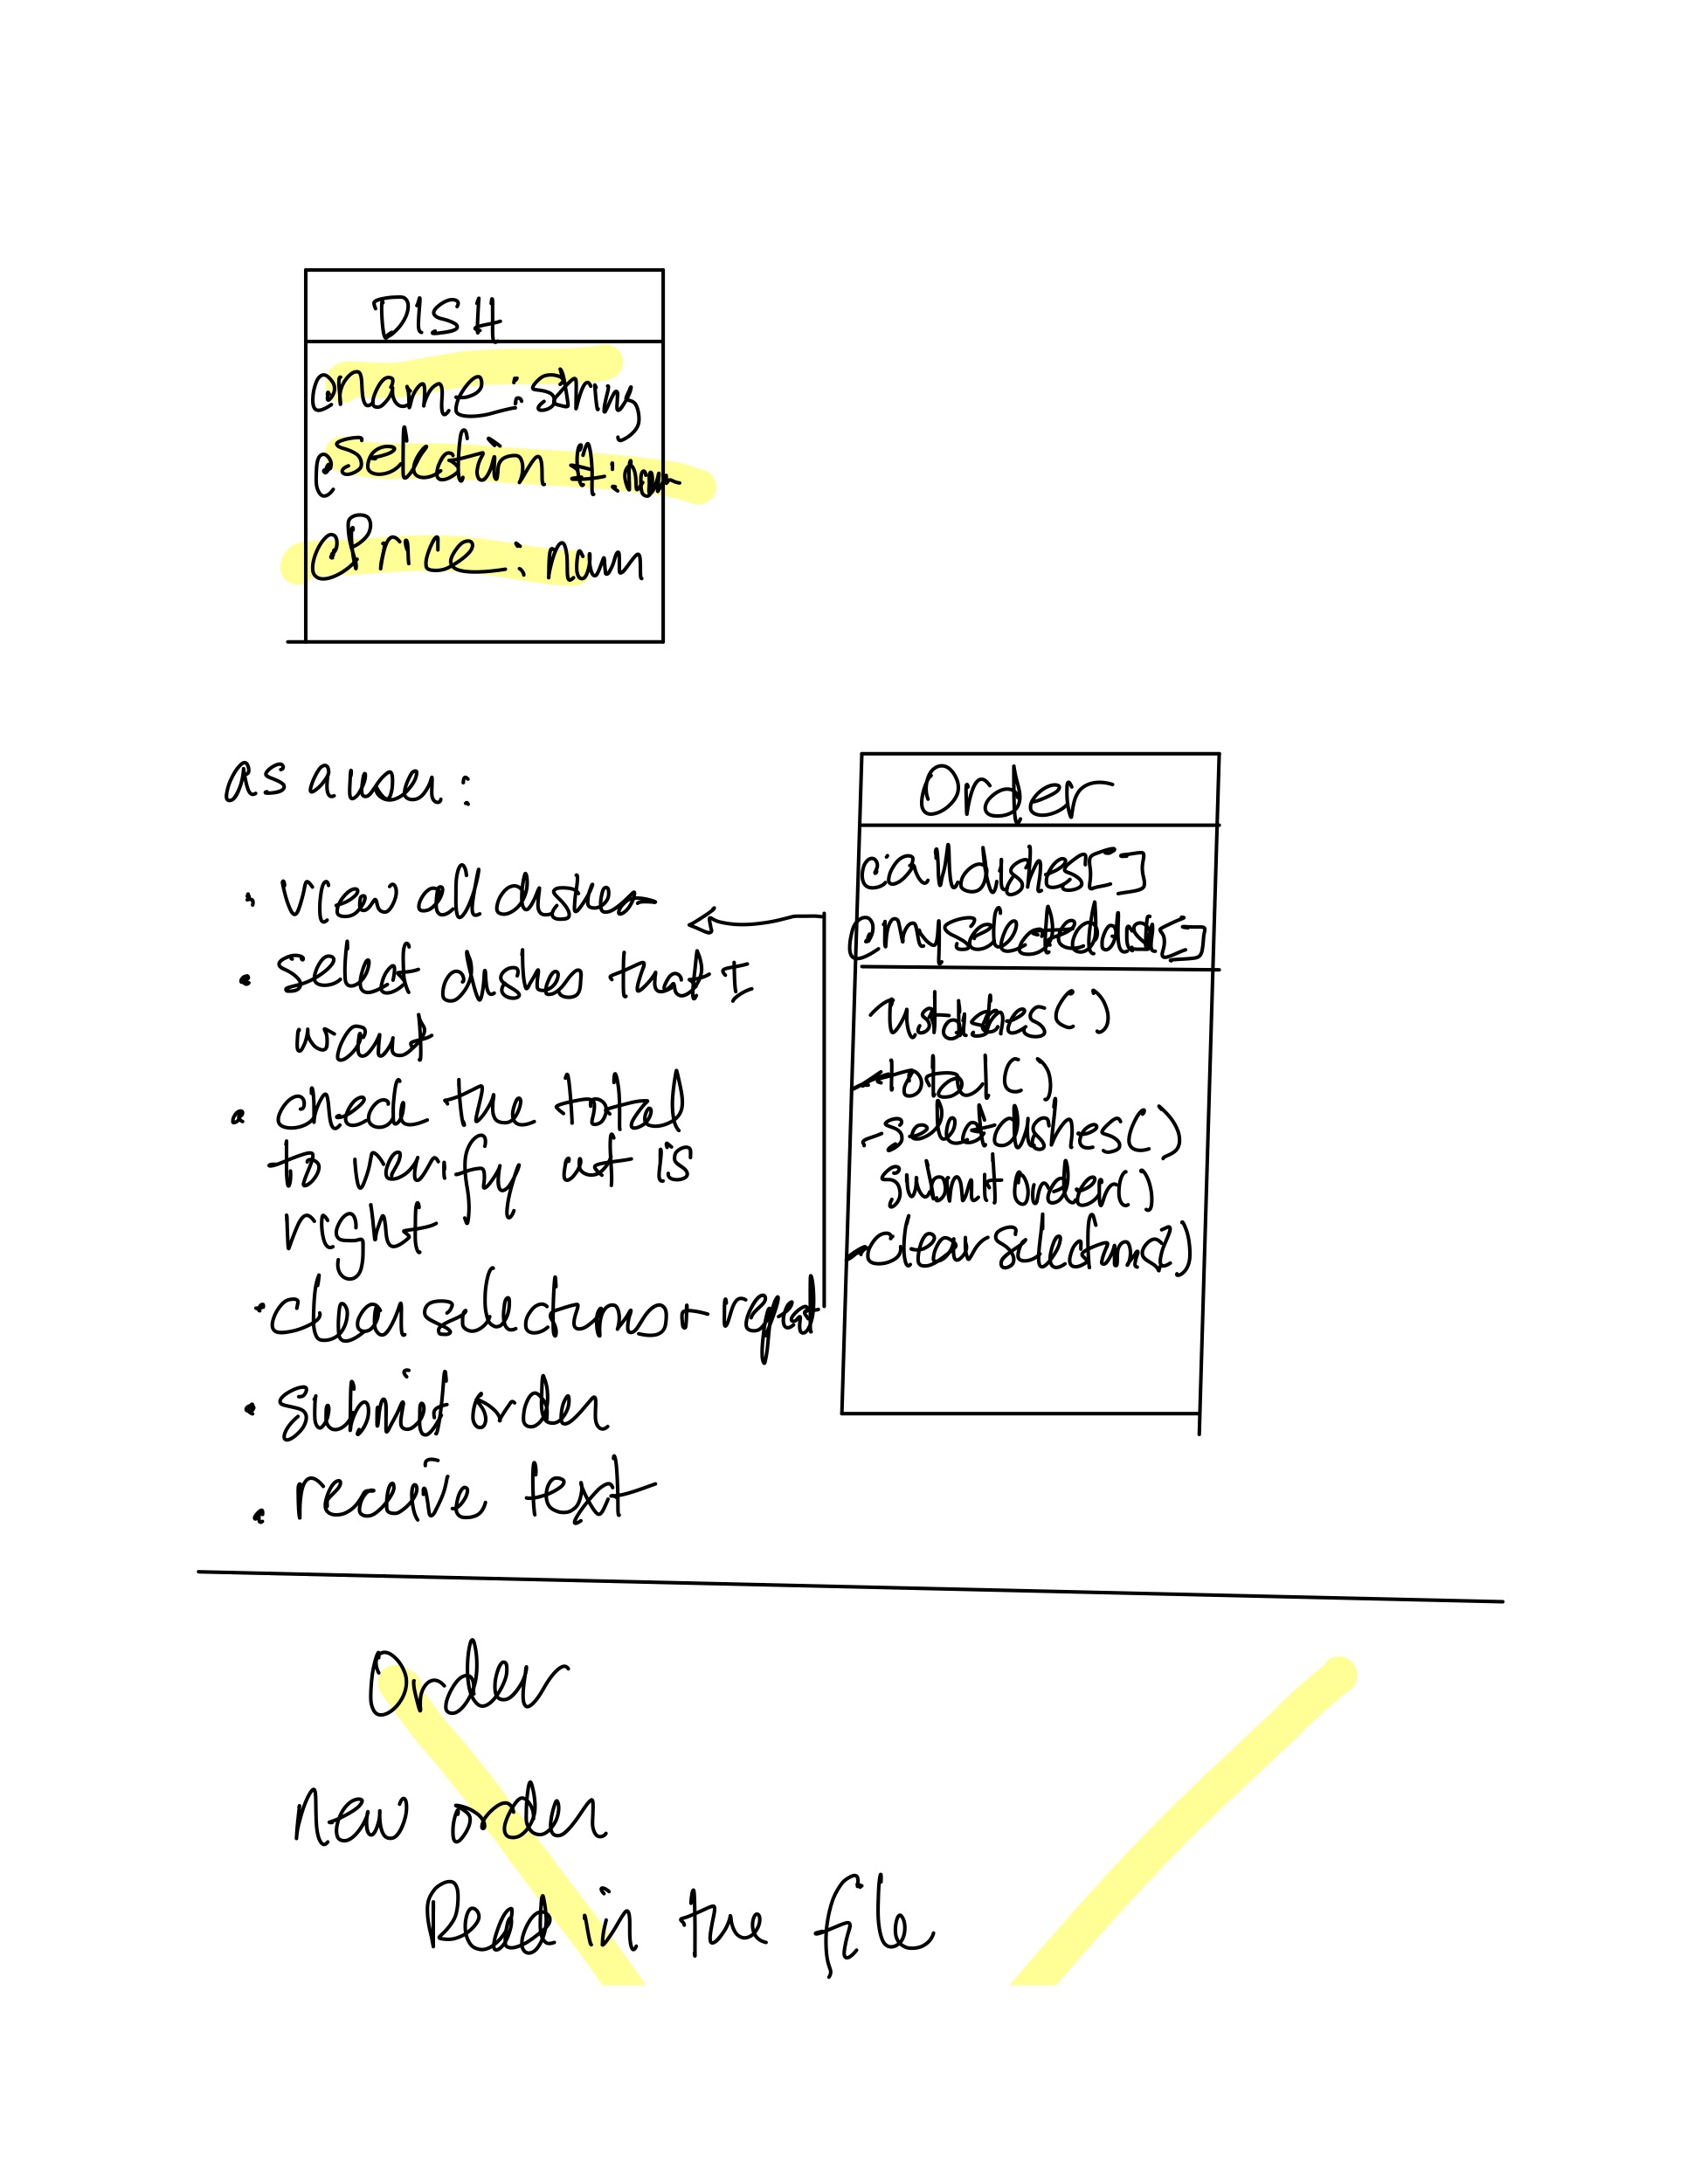 DISH
@name: string
@selection #: num
@Price: num
as a user:
· view all dishes
· select dishes that I
want
· check the total
to verify it is
right
· clear selections + repeat
· submit order
· receive text
Order
@alldishes[]
@myselecteddish[]
listdishes()
total()
selectdishes()
submitorder()
clearselections()
Order
new order
Read in the file